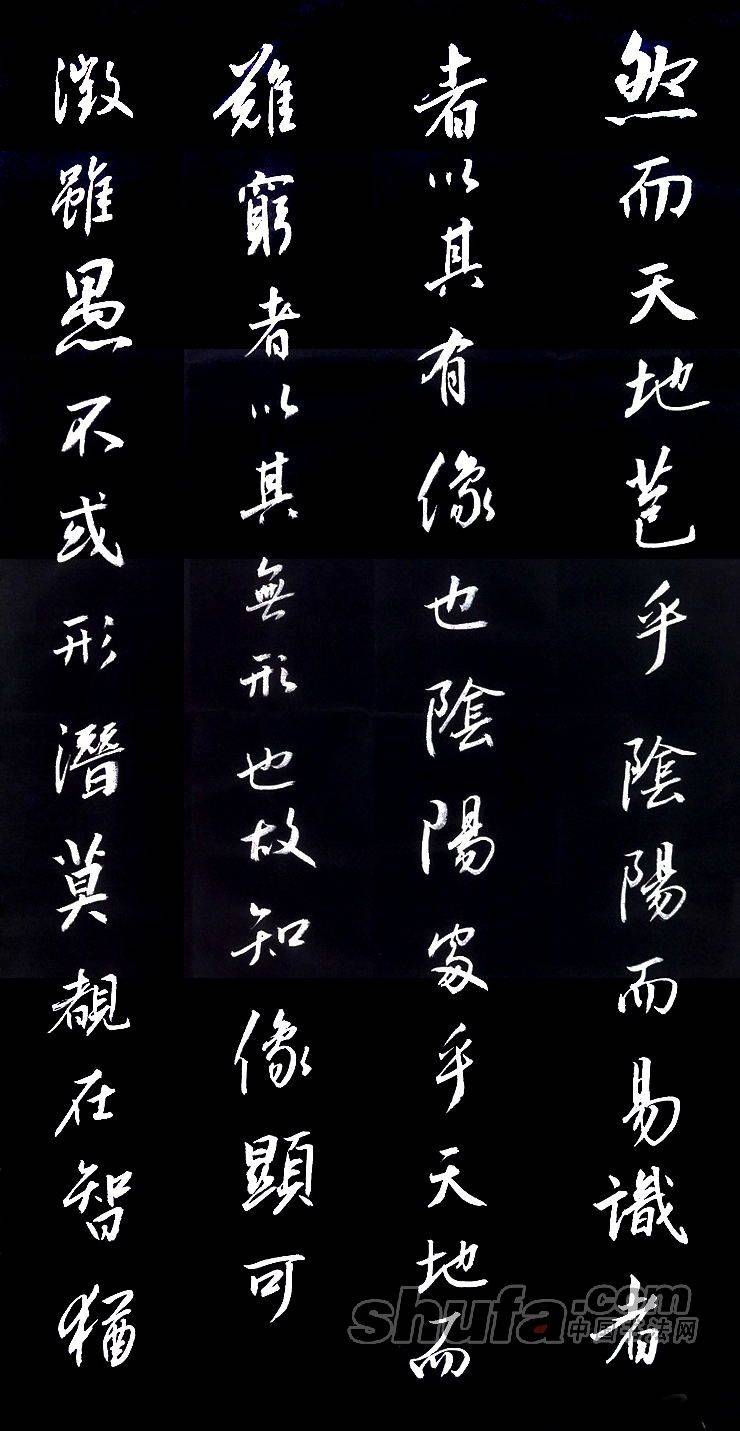 然而天地苞乎陰陽而易識者
者以其有像也陰陽處乎天地而
難窮者以其無形也故知像顯可
徵雖愚不或形潛莫覩在智猶
shufa.com
中国书法网